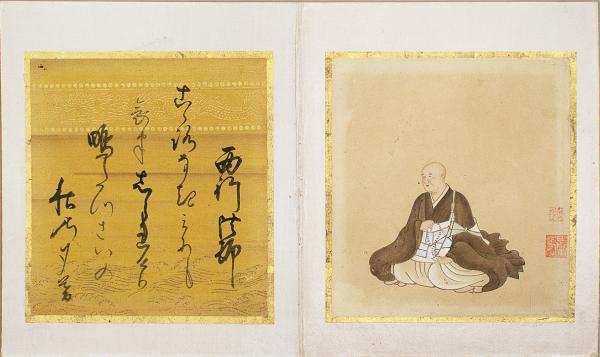 西行法師
こゝろなきみにも
哀はしられけり
鴫たつさはの
秋の夕暮